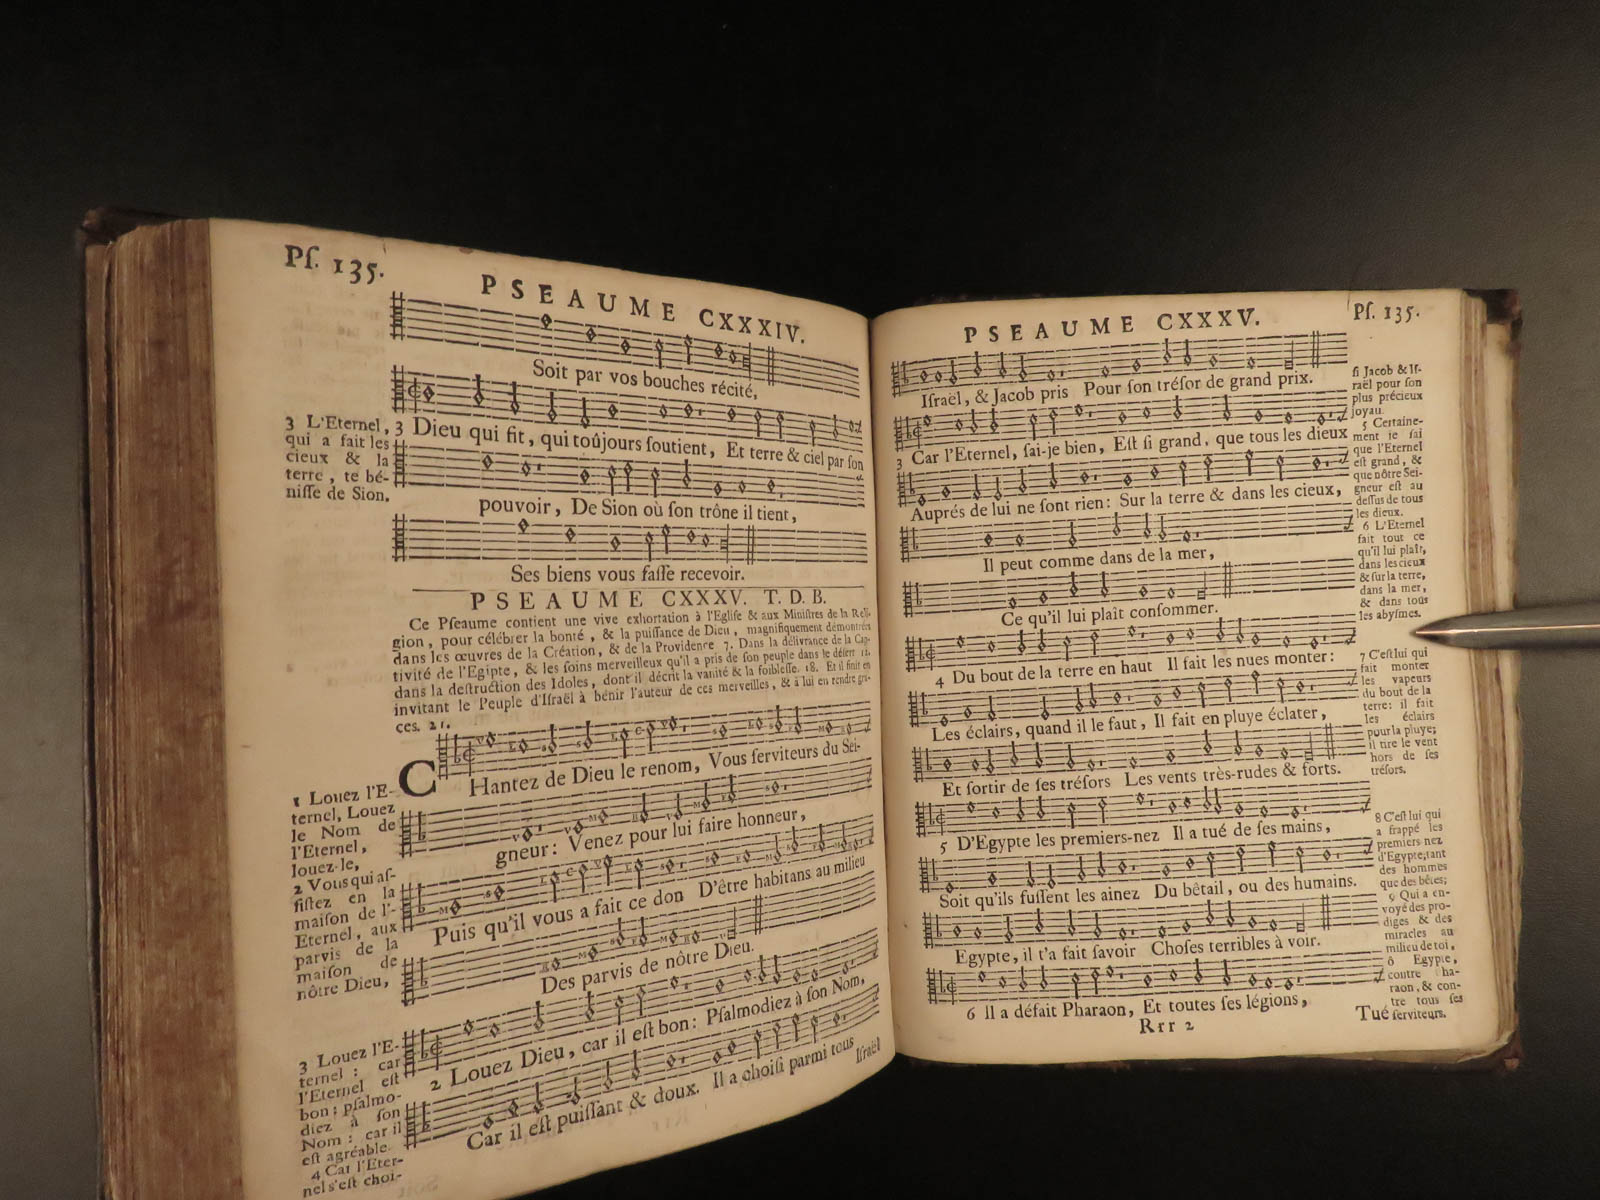 Pſ. 135.
PSEAUME CXXXIV.
Soit par vos bouches récité,
3 Dieu qui fit, qui toûjours ſoutient, Et terre & ciel par ſon
pouvoir, De Sion où ſon trône il tient,
Ses biens vous faſſe recevoir.
3 L'Eternel,
qui a fait les
cieux & la
terre, te bé-
niſſe de Sion.
PSEAUME CXXXV. T. D. B.
Ce Pſeaume contient une vive exhortation à l'Egliſe & aux Miniſtres de la Reli-
gion, pour célébrer la bonté, & la puiſſance de Dieu, magnifiquement démontrées
dans les œuvres de la Création, & de la Providence 7. Dans la délivrance de la Cap-
tivité de l'Egipte, & les ſoins merveilleux qu'il a pris de ſon peuple dans le déſert 12.
dans la deſtruction des Idoles, dont il décrit la vanité & la foibleſſe. 18. Et il finit en
invitant le Peuple d'Iſraël à bénir l'auteur de ces merveilles, & à lui en rendre grà-
ces. 21.
CHantez de Dieu le renom, Vous ſerviteurs du Sei-
gneur: Venez pour lui faire honneur,
Puis qu'il vous a fait ce don D'être habitans au milieu
Des parvis de nôtre Dieu.
2 Louez Dieu, car il eſt bon: Pſalmodiez à ſon Nom,
Car il eſt puiſſant & doux. Il a choiſi parmi tous
Iſraël
1 Louez l'E-
ternel, Louez
le Nom de
l'Eternel,
louez-le,
2 Vous qui aſ-
ſiſtez en la
maiſon de l'-
Eternel, aux
parvis de la
maiſon de
nôtre Dieu,
3 Louez l'E-
ternel: car
l'Eternel eſt
bon: pſalmo-
diez à ſon
Nom: car il
eſt agréable.
4 Car l'Eter-
nel s'eſt choi-
PSEAUME CXXXV.
Pſ. 135.
Iſraël, & Jacob pris Pour ſon tréſor de grand prix.
3 Car l'Eternel, ſai-je bien, Eſt ſi grand, que tous les dieux
Auprés de lui ne ſont rien: Sur la terre & dans les cieux,
Il peut comme dans de la mer,
Ce qu'il lui plaît conſommer.
4 Du bout de la terre en haut Il fait les nues monter:
Les éclairs, quand il le faut, Il fait en pluye éclater,
Et ſortir de ſes tréſors Les vents très-rudes & forts.
5 D'Egypte les premiers-nez Il a tué de ſes mains,
Soit qu'ils fuſſent les ainez Du bêtail, ou des humains.
Egypte, il t'a fait ſavoir Choſes terribles à voir.
6 Il a défait Pharaon, Et toutes ſes légions,
Rrr 2
Tué
ſi Jacob & Iſ-
raël pour ſon
plus précieux
joyau.
5 Certaine-
ment je ſai
que l'Eternel
eſt grand, &
que nôtre Sei-
gneur eſt au
deſſus de tous
les dieux.
6 L'Eternel
fait tout ce
qu'il lui plaît,
dans les cieux
& ſur la terre,
dans la mer,
& dans tous
les abyſmes.
7 C'eſt lui qui
fait monter
les vapeurs
du bout de la
terre: il fait
les éclairs
pour la pluye;
il tire le vent
hors de ſes
tréſors.
8 C'eſt lui qui
a frappé les
premiers nez
d'Egypte, tant
des hommes
que des bêtes;
9 Qui a en-
voyé des pro-
diges & des
miracles au
milieu de toi,
ô Egypte,
contre Pha-
raon, & con-
tre tous ſes
ſerviteurs.